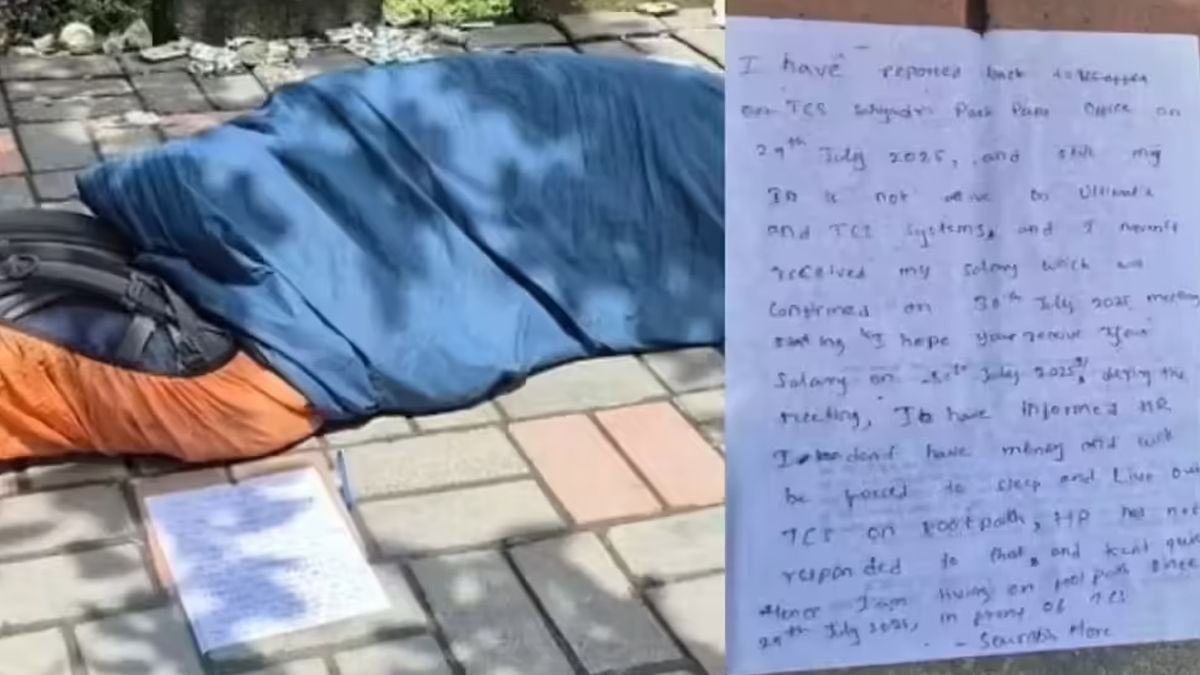 I have reported back
on TCS Sahyadri Park Pune Office on
29th July 2025, and still my
ID is not active on Ultimatix
and TCS systems, and I haven't
received my salary which was
confirmed on 30th July 2025 meeting
stating "I hope your receive your
salary on July 2025", during the
meeting, I have informed HR
I don't have money and will
be forced to sleep and Live out
TCS on footpath, HR has not
responded to that, and kept quiet
Hence I am living on foot path since
29th July 2025, in front of TCS
- Saurabh More